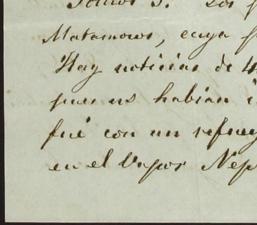 Matamoros, cuya
Hay noticias de 4
pues no habian
fué con un refuer
en el Vapor Nep